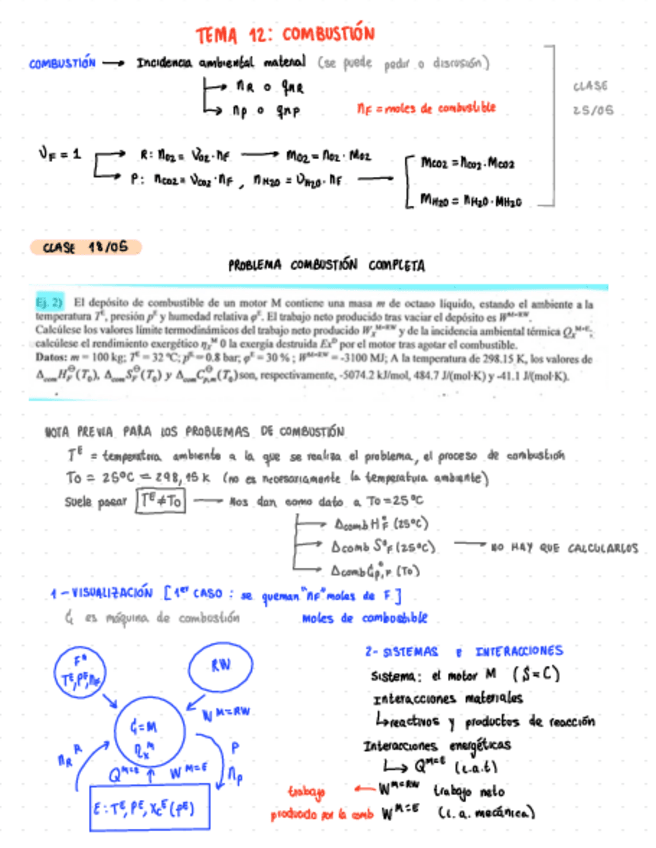 TEMA 12: COMBUSTIÓN
COMBUSTIÓN → Incidencia ambiental material (se puede pedir o discusión)
→ nR o qnR
→ np o qnp nF = moles de combustible
CLASE
25/05
νF = 1 → R: nO2 = νO2·nF → mO2 = nO2·MO2
→ P: nCO2 = νCO2·nF, nH2O = νH2O·nF → mCO2 = nCO2·MCO2
mH2O = nH2O·MH2O
CLASE 18/05
PROBLEMA COMBUSTIÓN COMPLETA
Ej. 2) El depósito de combustible de un motor M contiene una masa m de octano líquido, estando el ambiente a la
temperatura T^E, presión p^E y humedad relativa φ^E. El trabajo neto producido tras vaciar el depósito es W^M=RW.
Calcúlese los valores límite termodinámicos del trabajo neto producido W_x^M=RW y de la incidencia ambiental térmica Q_x^M=E,
calcúlese el rendimiento exergético η_x^M o la exergía destruida Ex^D por el motor tras agotar el combustible.
Datos: m = 100 kg; T^E = 32 ºC; p^E = 0.8 bar; φ^E = 30 %; W^M=RW = -3100 MJ; A la temperatura de 298.15 K, los valores de
Δ_com H_F^⊖(T_0), Δ_com S_F^⊖(T_0) y Δ_com C_p,m^⊖(T_0) son, respectivamente, -5074.2 kJ/mol, 484.7 J/(mol·K) y -41.1 J/(mol·K).
NOTA PREVIA PARA LOS PROBLEMAS DE COMBUSTIÓN
T^E = temperatura ambiente a la que se realiza el problema, el proceso de combustión
To = 25ºC = 298,15 K (no es necesariamente la temperatura ambiente)
Suele pasar T^E ≠ To → Nos dan como dato a To = 25ºC
→ Δcomb H°F (25ºC)
→ Δcomb S°F (25ºC) → NO HAY QUE CALCULARLOS
→ Δcomb C°p,F (To)
1-VISUALIZACIÓN [1er CASO: se queman "nF" moles de F]
C es máquina de combustión moles de combustible
F^a
T^E, P^E, nF
RW
W^M=RW
C=M
η_x^M
R
nR
Q^M=E
W^M=E
P
np
E: T^E, P^E, Xc^E (φ^E)
2-SISTEMAS E INTERACCIONES
Sistema: el motor M (S=C)
Interacciones materiales
↳ reactivos y productos de reacción
Interacciones energéticas
↳ Q^M=E (i.a.t)
trabajo ← W^M=RW trabajo neto
producido por la comb W^M=E (i.a. mecánica)